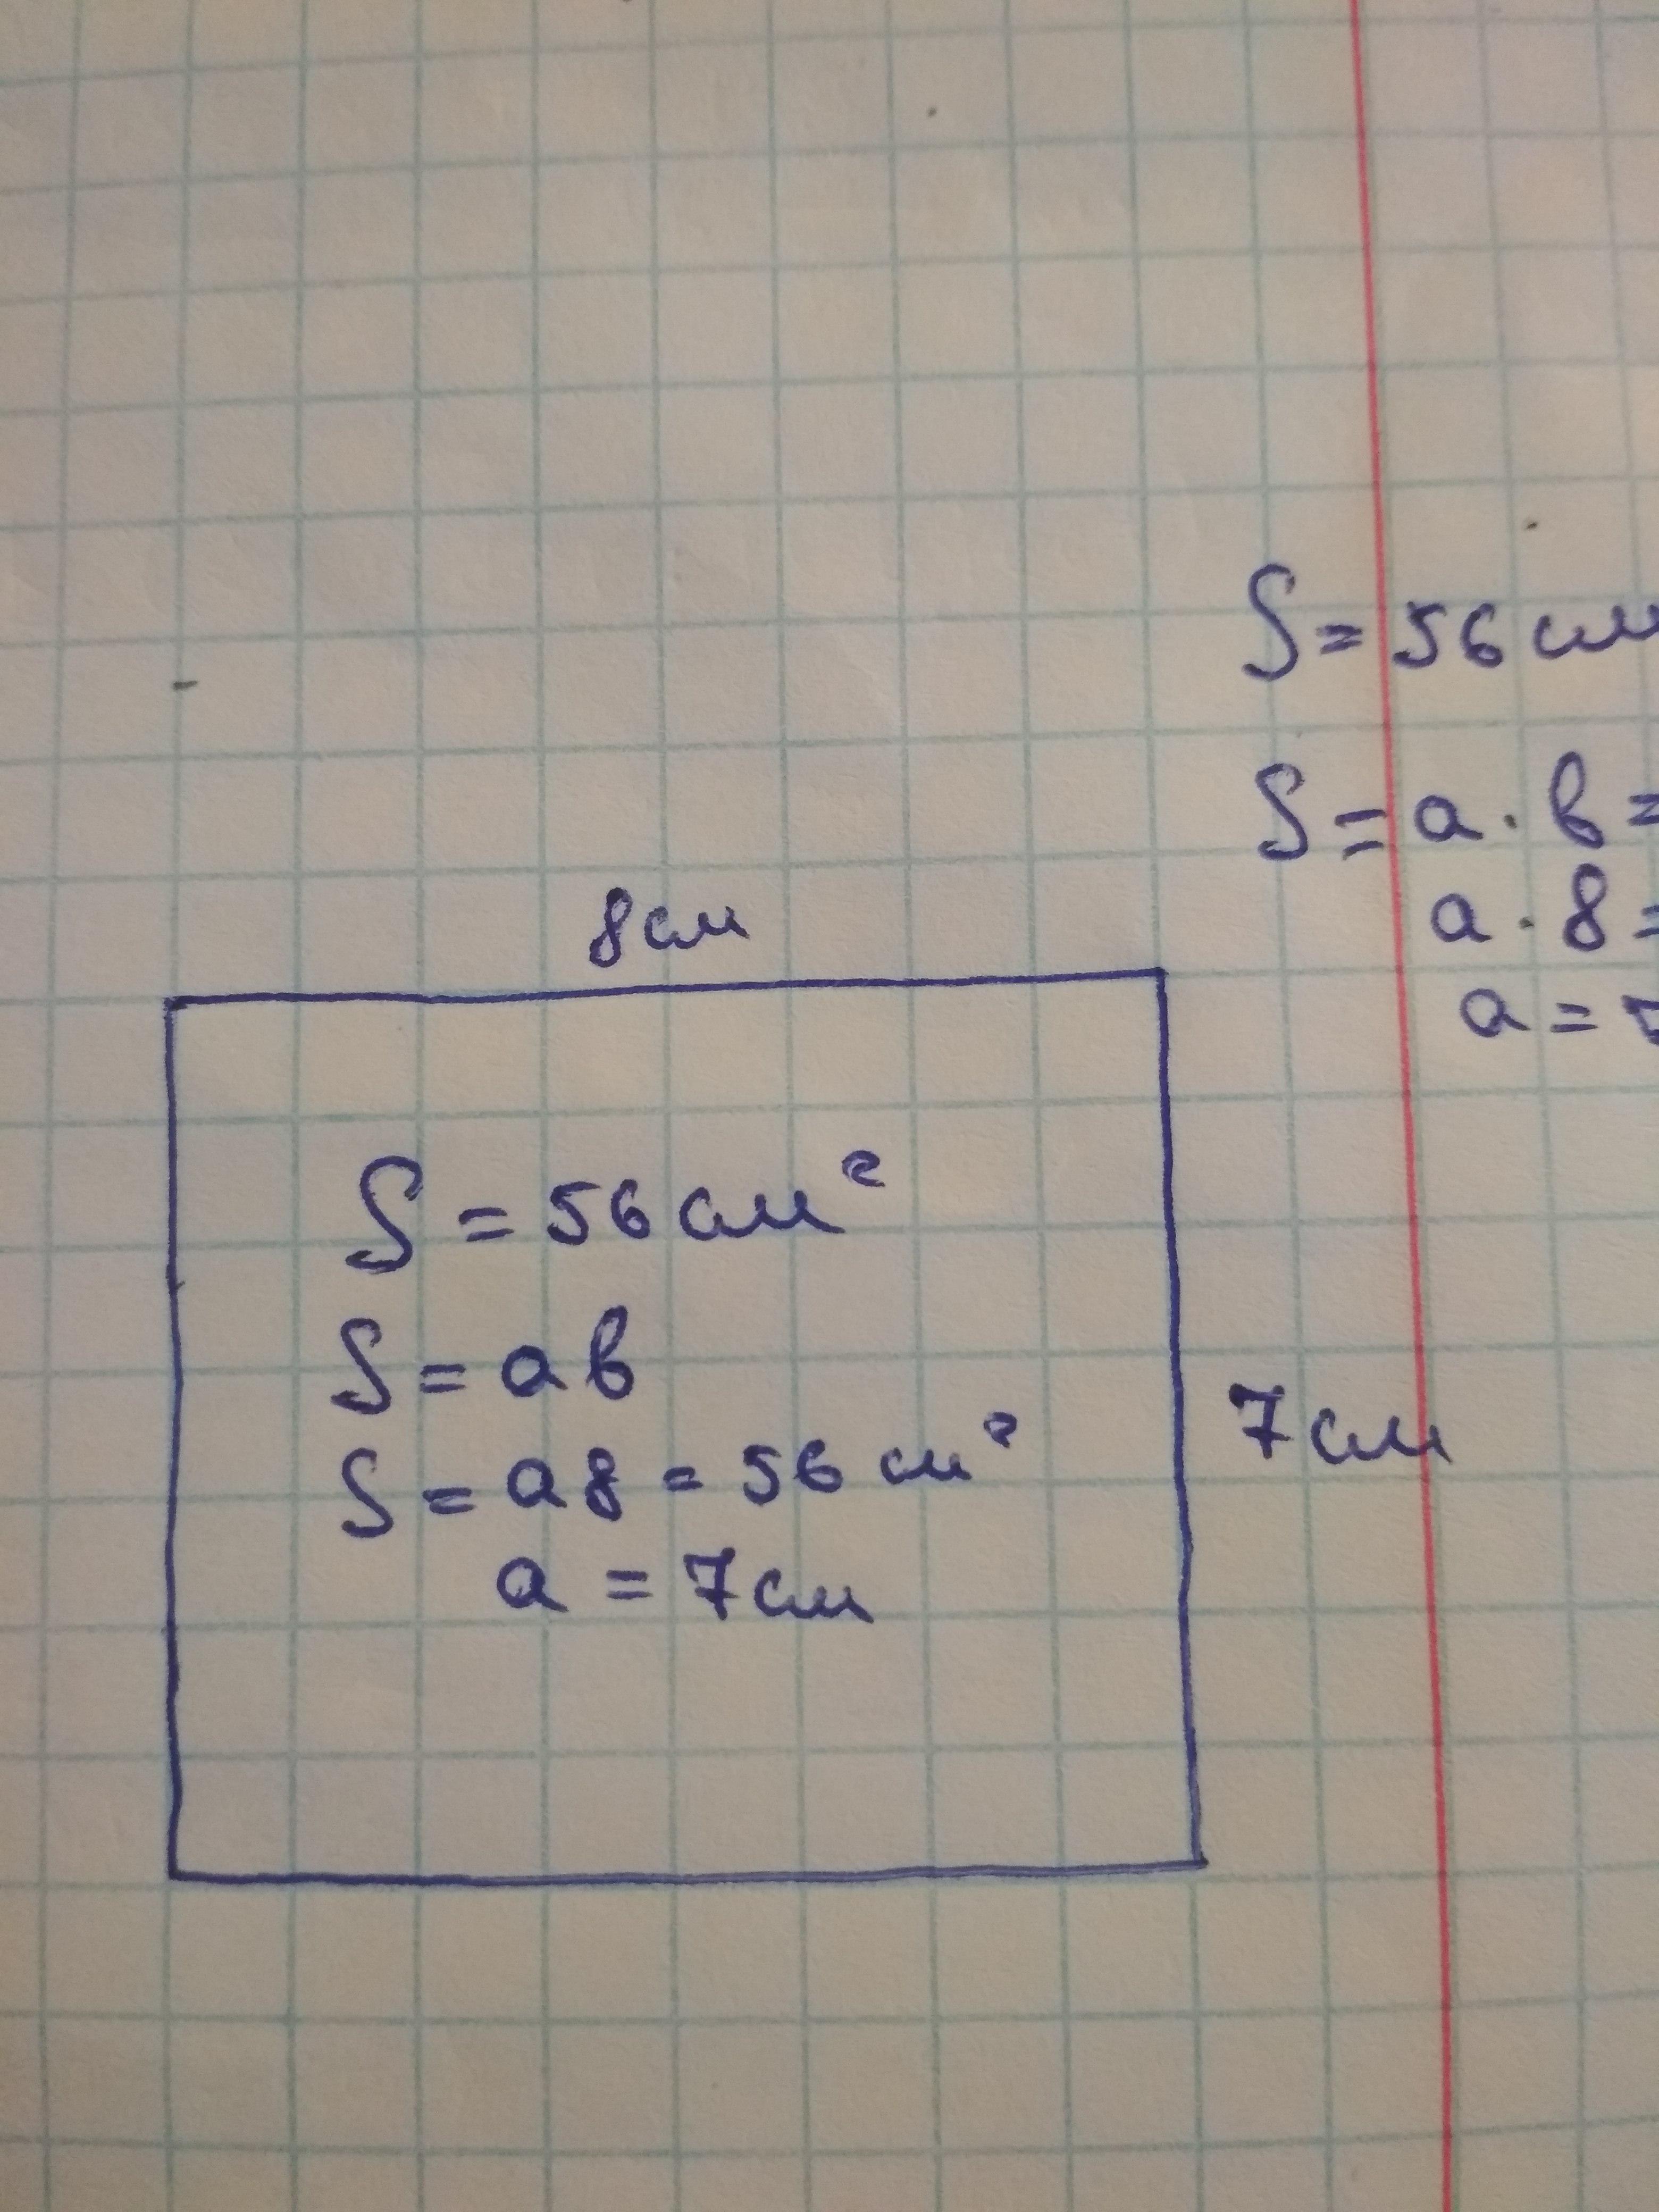 S = 56 см
S = a · b =
a · 8 =
a = 7
8 см
S = 56 см²
S = a b
S = a 8 = 56 см²
a = 7 см
7 см